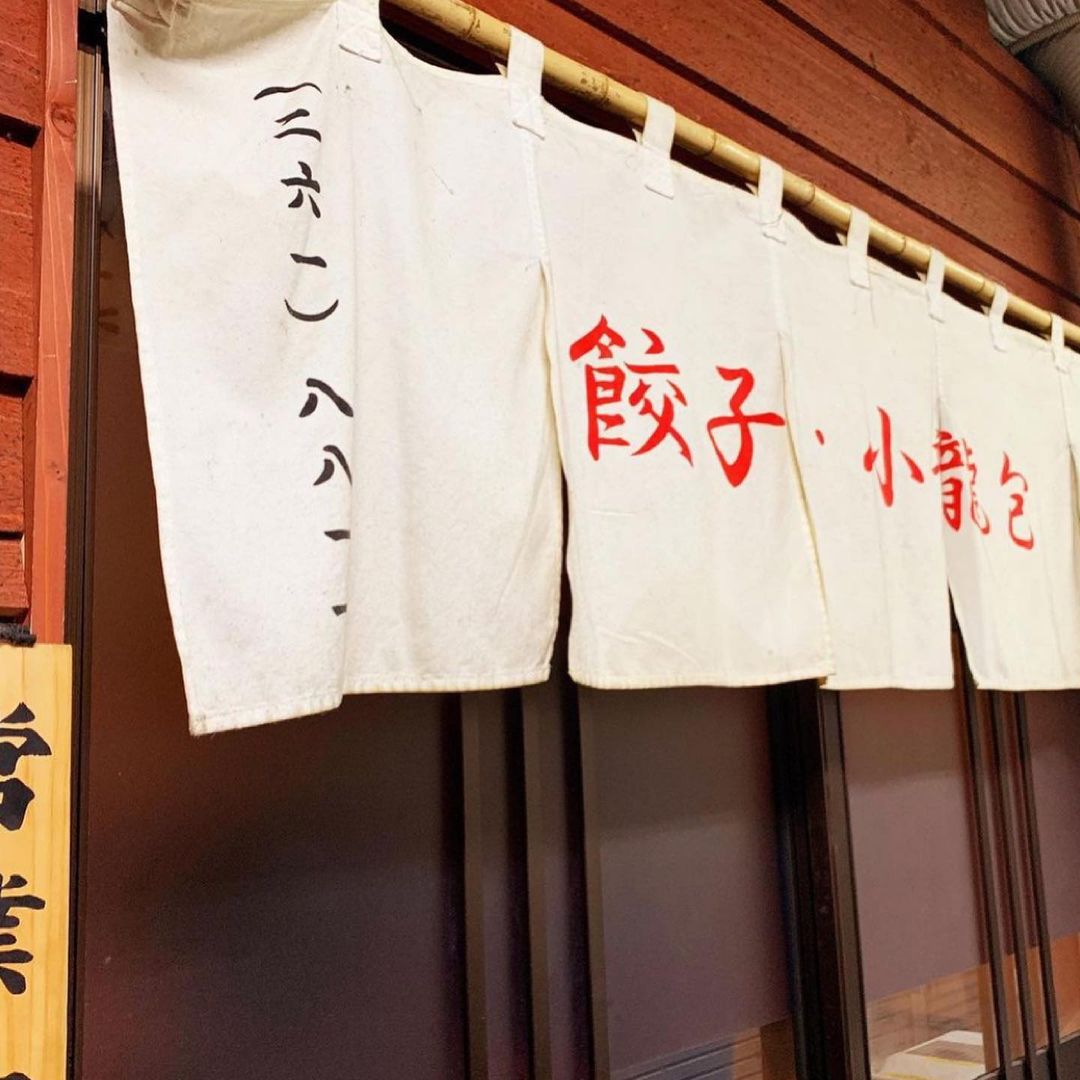 (二六一) 八八一一
餃子・小龍包
営業